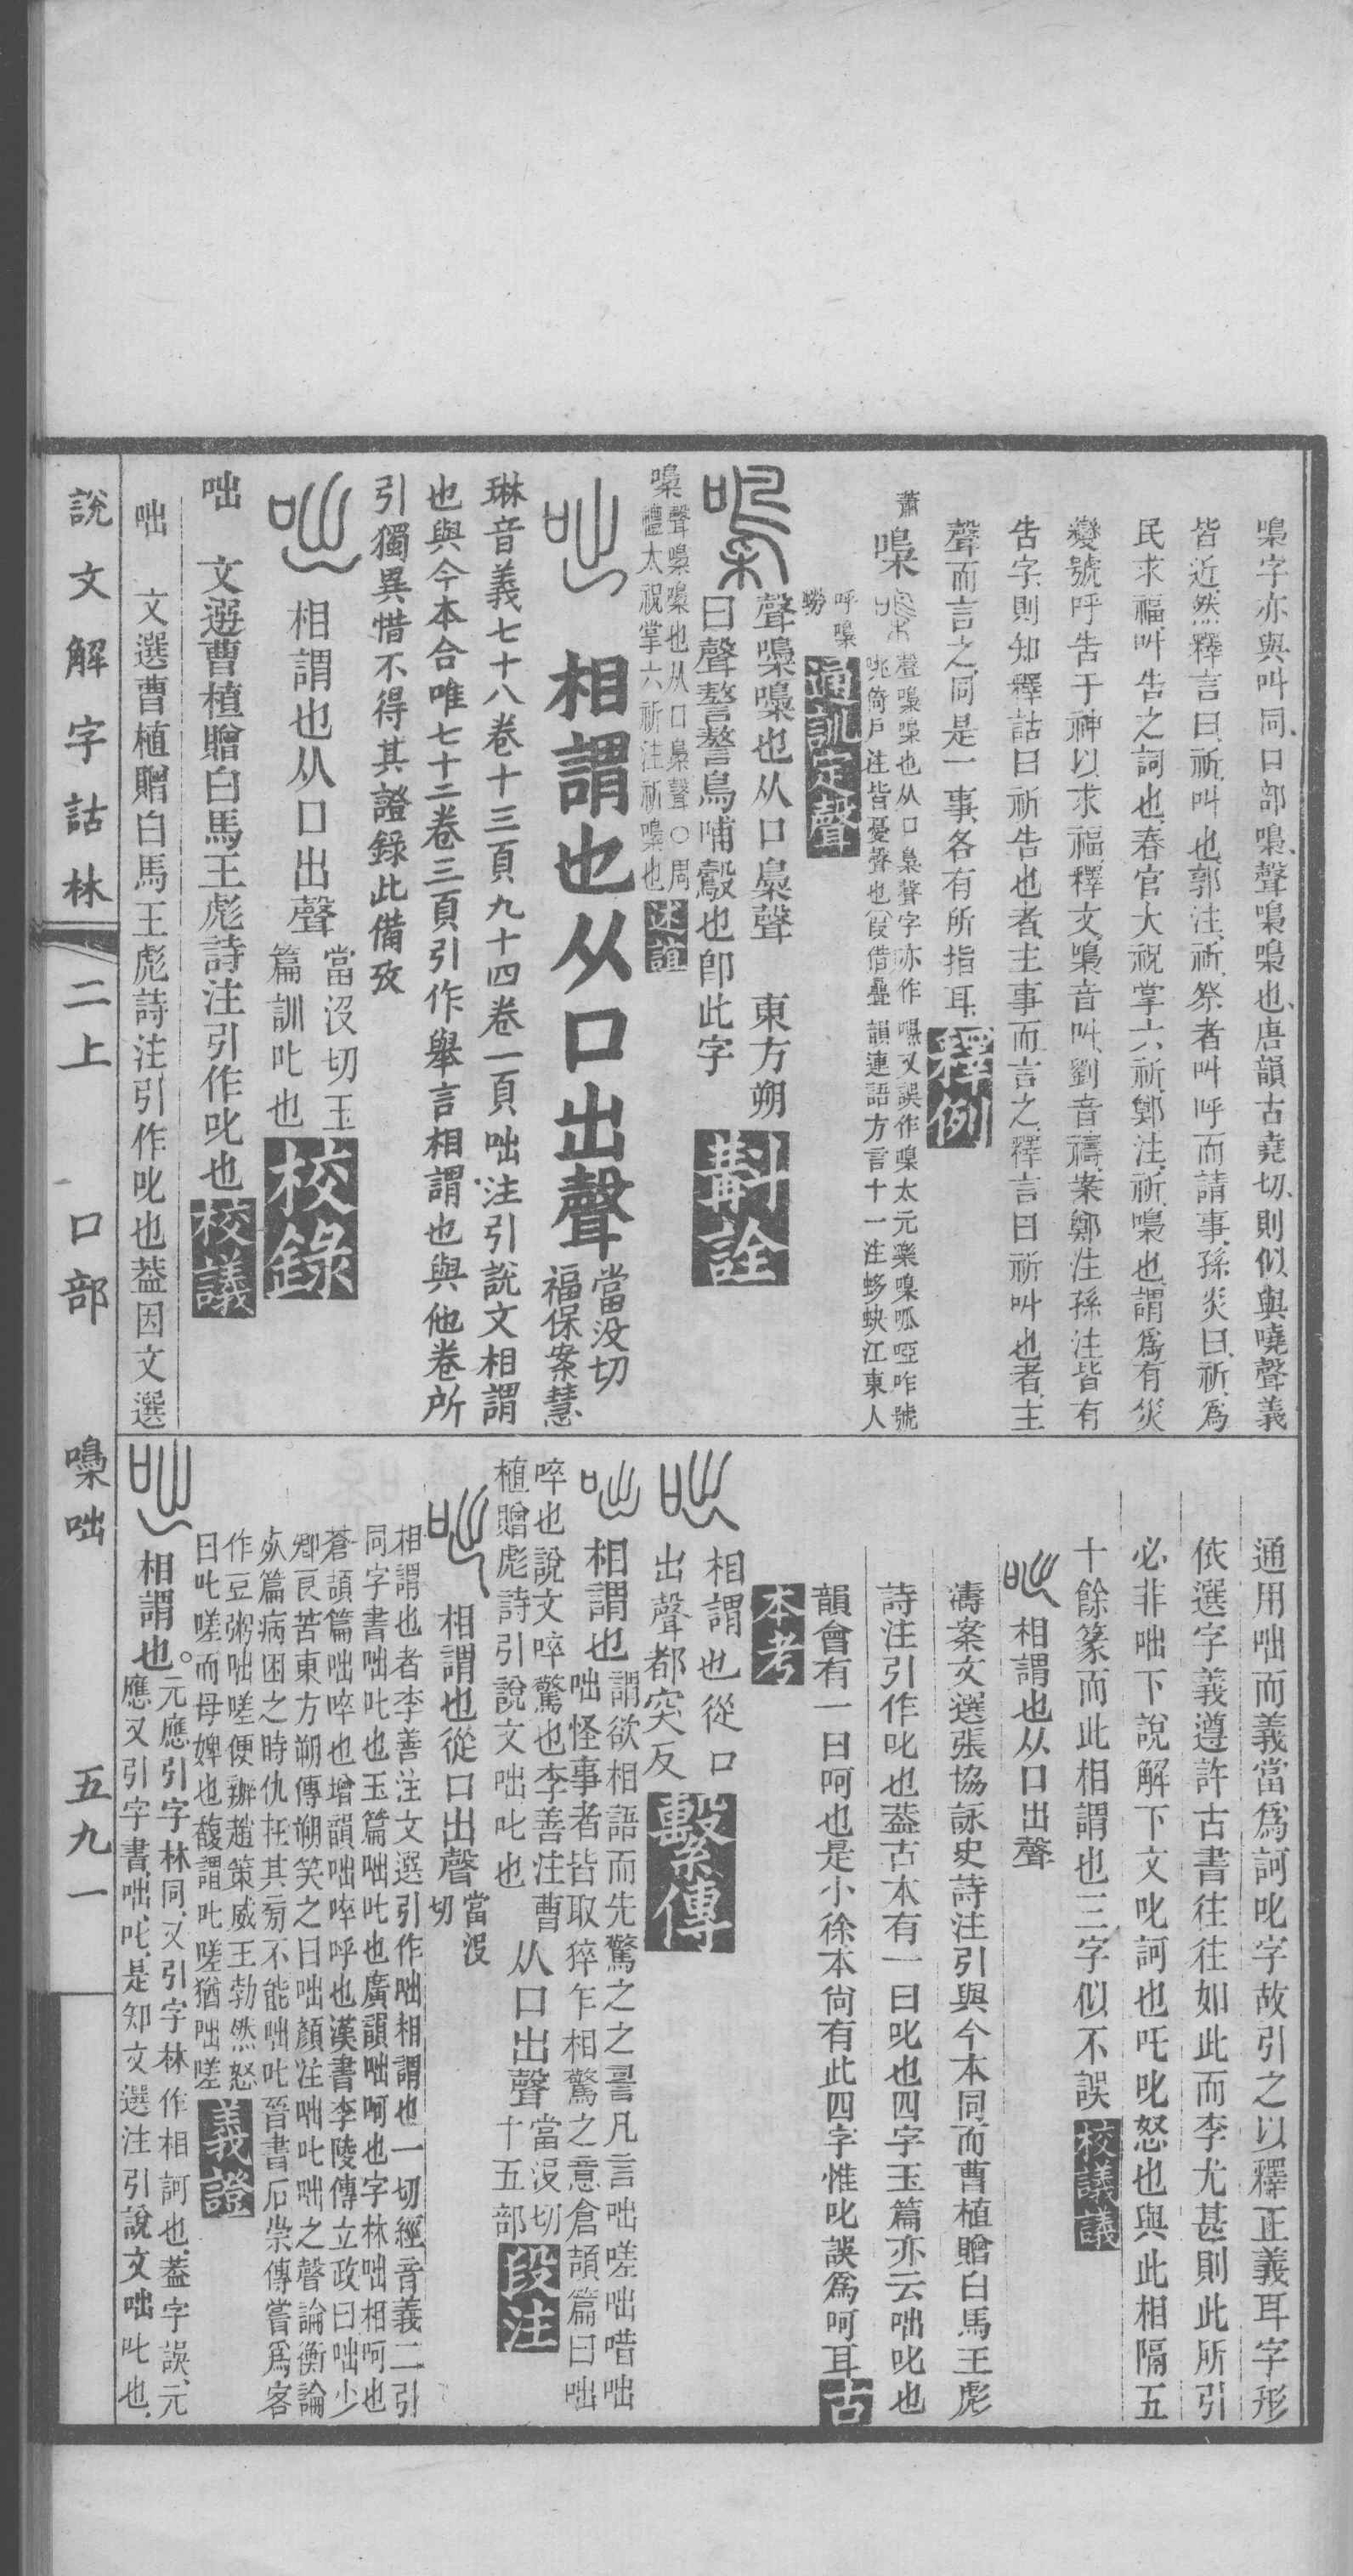 嘄字亦與叫同、口部嘄、聲嘄嘄也、唐韻古堯切、則似與嘵聲義
皆近、然釋言曰、祈、叫也、郭注、祈、祭者叫呼而請事、孫炎曰、祈、爲
民求福、叫告之詞也、春官大祝掌六祈、鄭注、祈、嘄也、謂爲有災
變號呼告于神以求福、釋文、嘄音叫、劉音禱、案鄭注孫注皆有
告字、則知釋詁曰祈告也者、主事而言之、釋言曰祈叫也者、主
聲而言之、同是一事、各有所指耳、
釋例
蕭
嘄
聲嘄嘄也从口梟聲字亦作
咷倚戶注皆憂聲也(叚借疊
韻連語方言十一注蛥蚗江東人
呼嘄
蟧
通訓定聲
聲嘄嘄也从口梟聲 東方朔
曰聲謷謷鳥哺鷇也卽此字
斠詮
嘄
聲嘄嘄也从口梟聲〇周
禮太祝掌六祈注祈嘄也
述誼
相謂也从口出聲
當没切
福保案慧
琳音義七十八卷十三頁九十四卷一頁咄注引說文相謂
也與今本合唯七十二卷三頁引作舉言相謂也與他卷所
引獨異惜不得其證錄此備攷
相謂也从口出聲
當没切玉
篇訓叱也
校錄
咄 文選曹植贈白馬王彪詩注引作叱也
校議
咄 文選曹植贈白馬王彪詩注引作叱也葢因文選
通用咄而義當爲訶叱字故引之以釋正義耳字形
依選字義遵許古書往往如此而李尤甚則此所引
必非咄下說解下文叱訶也吒叱怒也與此相隔五
十餘篆而此相謂也三字似不誤
校議議
相謂也从口出聲
濤案文選張協詠史詩注引與今本同而曹植贈白馬王彪
詩注引作叱也葢古本有一曰叱也四字玉篇亦云咄叱也
韻會有一曰呵也是小徐本尚有此四字惟叱誤爲呵耳
古本考
相謂也從口
出聲都突反
繫傳
相謂也
謂欲相語而先驚之之䛐凡言咄嗟咄唶咄
咄怪事者皆取猝乍相驚之意倉頡篇曰咄
啐也說文啐驚也李善注曹
植贈彪詩引說文咄叱也
从口出聲
當没切
十五部
段注
相謂也從口出聲
當没
切
相謂也者李善注文選引作咄相謂也一切經音義二引
同字書咄叱也玉篇咄叱也廣韻咄呵也字林咄相呵也
蒼頡篇咄啐也增韻咄啐呼也漢書李陵傳立政曰咄少
卿良苦東方朔傳朔笑之曰咄顏注咄叱咄之聲論衡論
死篇病困之時仇在其旁不能咄叱晉書石崇傳嘗爲客
作豆粥咄嗟便辦趙策威王勃然怒
曰叱嗟而母婢也馥謂叱嗟猶咄嗟
義證
相謂也。
元應引字林同、又引字林作相訶也、葢字誤、元
應又引字書、咄、叱、是知文選注引說文咄叱也、
說文解字詁林 二上 口部 嘄咄 五九一